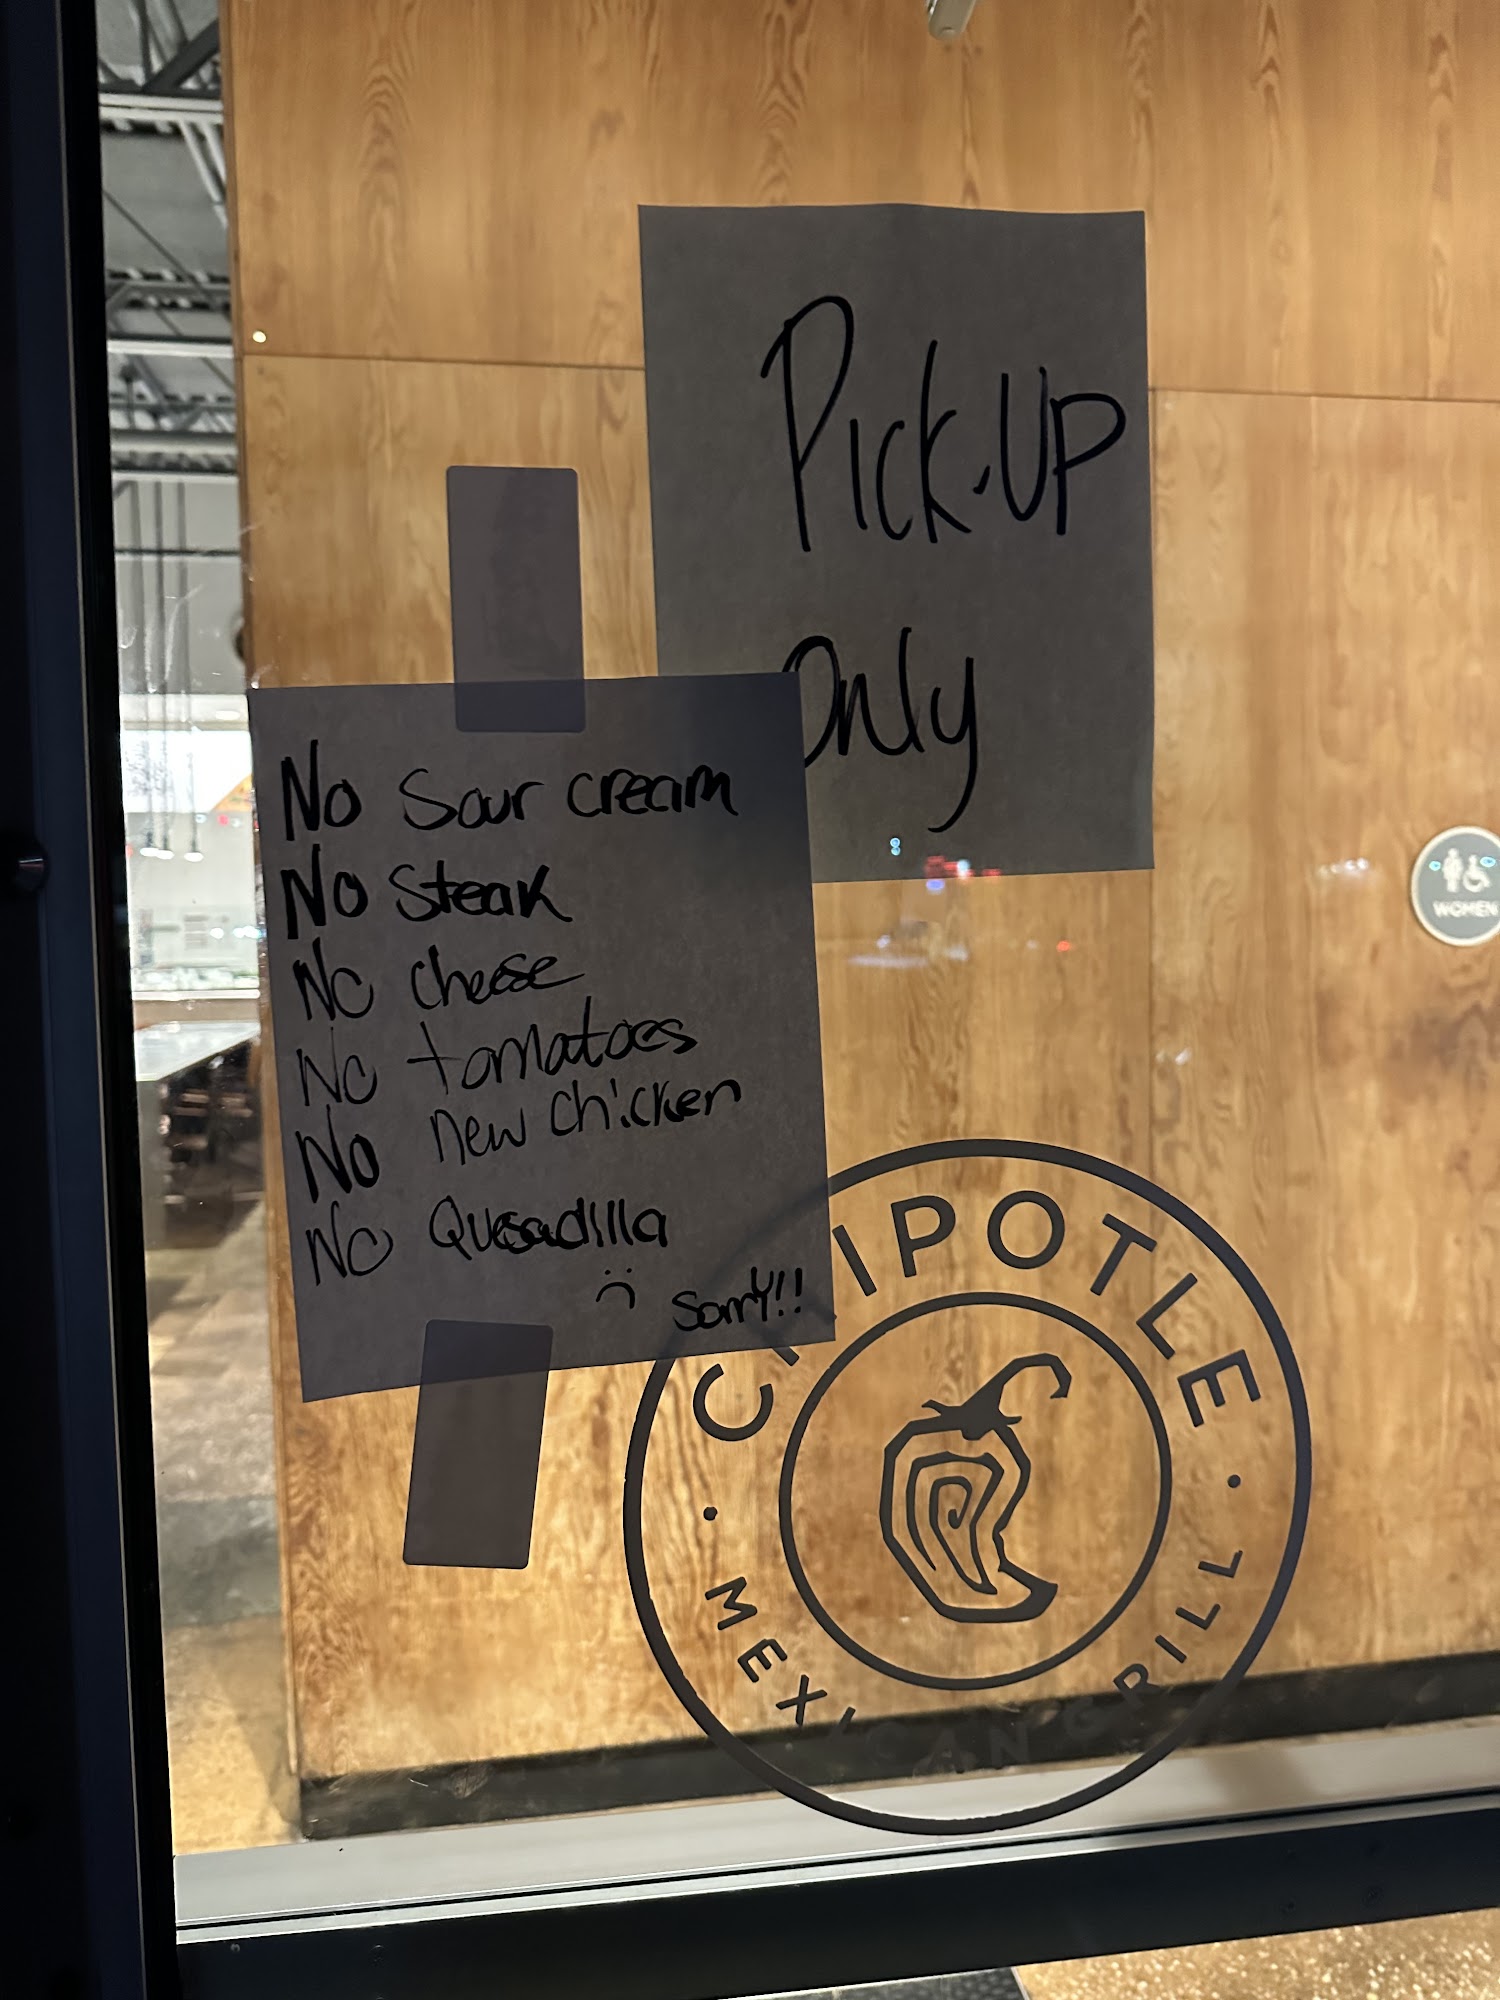 Pick-UP
Only
No Sour cream
No Steak
No cheese
No tomatoes
No new chicken
No Quesadilla
:( Sorry!!
CHIPOTLE
MEXICAN GRILL
WOMEN